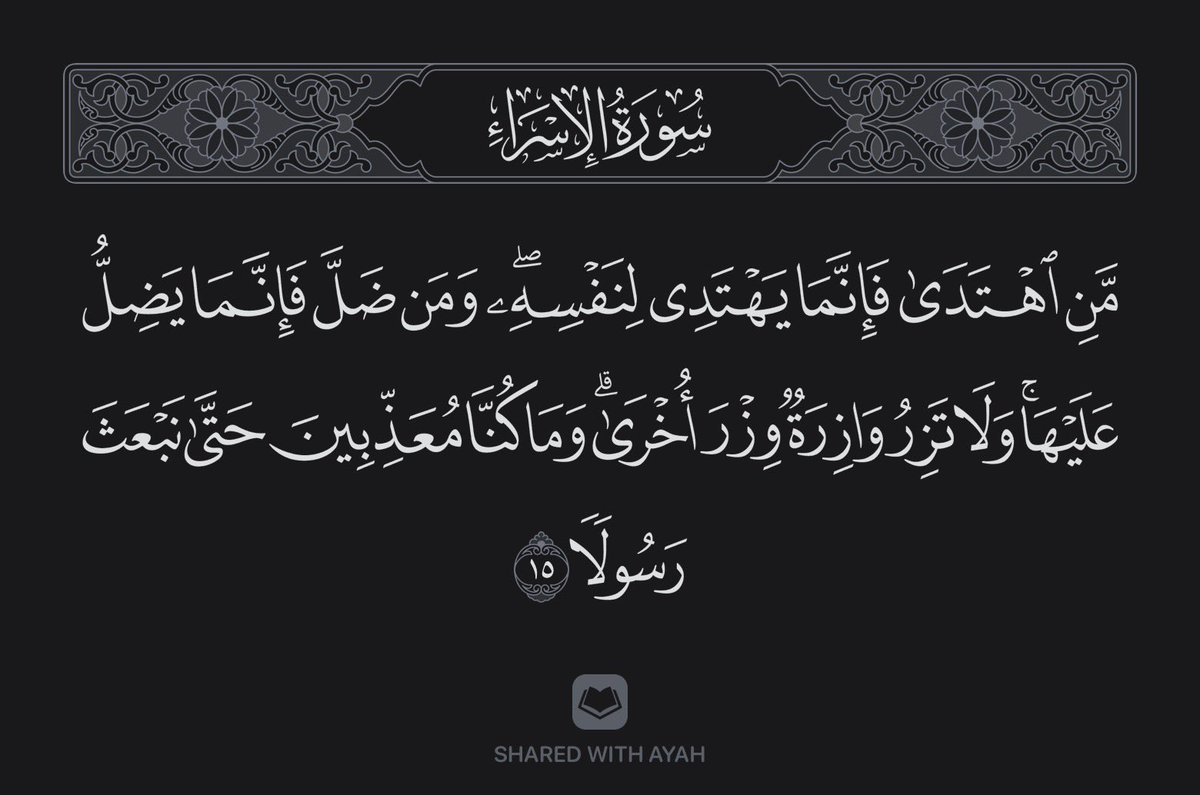 سُورَةُ الإِسْرَاءِ
مَّنِ ٱهۡتَدَىٰ فَإِنَّمَا يَهۡتَدِى لِنَفۡسِهِۦۖ وَمَن ضَلَّ فَإِنَّمَا يَضِلُّ
عَلَيۡهَاۚ وَلَا تَزِرُ وَازِرَةٞ وِزۡرَ أُخۡرَىٰۗ وَمَا كُنَّا مُعَذِّبِينَ حَتَّىٰ نَبۡعَثَ
رَسُولٗا ١٥
SHARED WITH AYAH